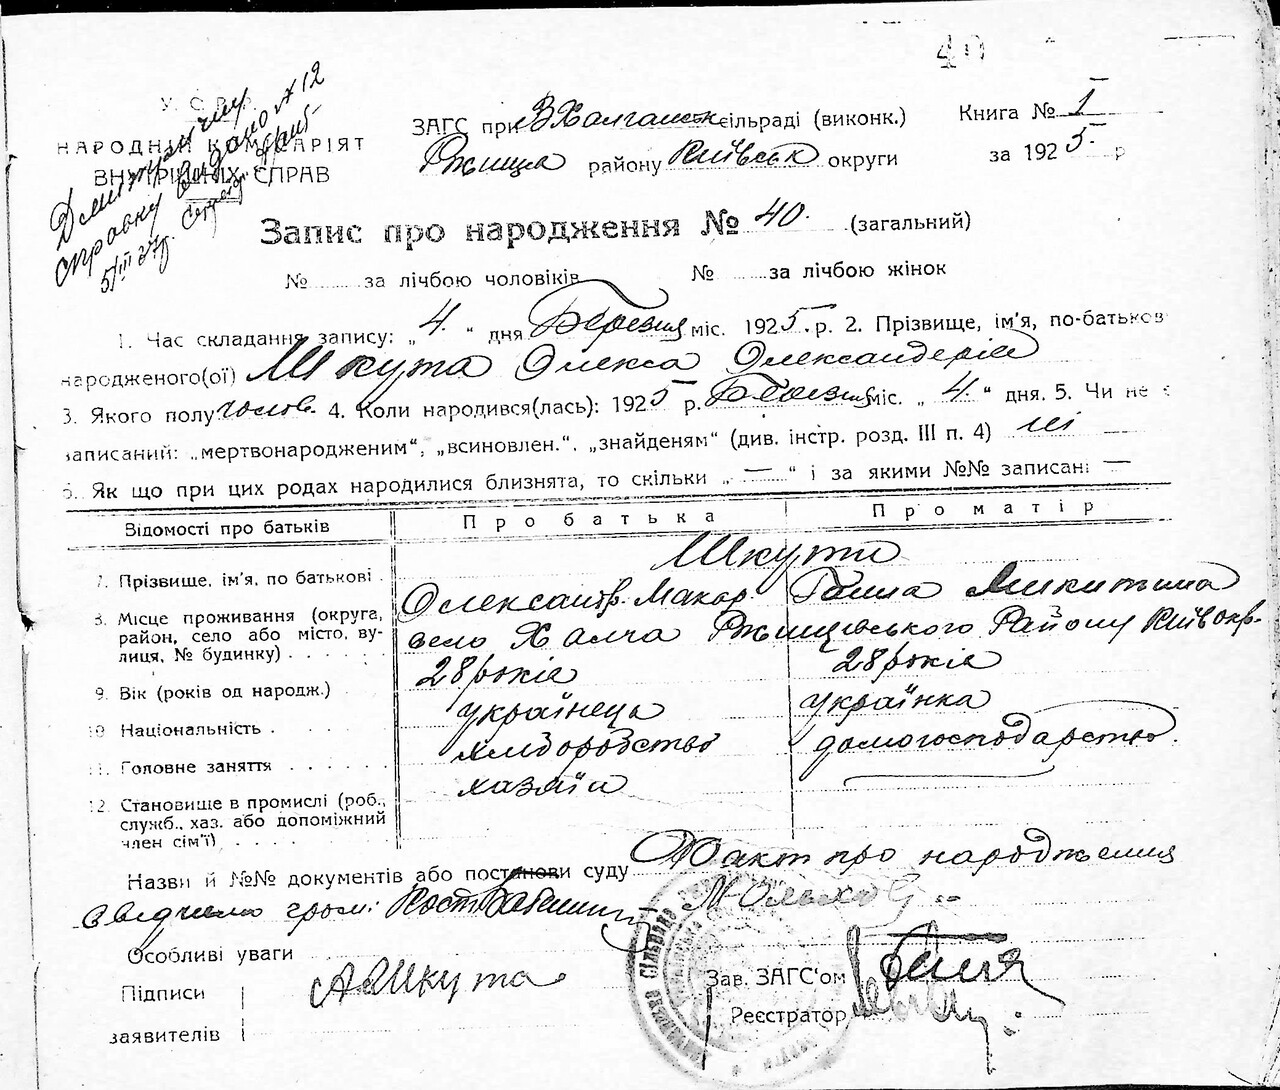 40
У. С. Р. Р.
НАРОДНІЙ КОМІСАРІЯТ
ВНУТРІШНІХ СПРАВ
справку видано № 12
5/III 27р.
ЗАГС при сільраді (виконк.) Книга № 1
району Київськ округи за 1925 р
Запис про народження № 40. (загальний)
№ за лічбою чоловіків № за лічбою жінок
1. Час складання запису: „4“ дня Березня міс. 1925.р. 2. Прізвище, ім'я, по-батьков
народженого(ої) Шкута Олекса Олександерів
3. Якого полу чолов. 4. Коли народився(лась): 1925 р. Березня міс. „4“ дня. 5. Чи не є
записаний: „мертвонародженим“, „всиновлен.“, „знайденям“ (див. інстр. розд. III п. 4) ні —
6. Як що при цих родах народилися близнята, то скільки „—“ і за якими №№ записані —
Відомості про батьків Про батька Про матір
Шкути
7. Прізвище, ім'я, по батькові . Олександр. Макар. Ганна Микитина
8. Місце проживання (округа, район, село або місто, вулиця, № будинку) . . . . . село Халча Ржищівського Району Київ окр.
9. Вік (років од народж.) 28 років 28 років
10 Національність . українець українка
11. Головне заняття . . . . . . хліборобство домогосподарство.
12. Становище в промислі (роб., служб., хаз. або допоміжний член сім'ї) . . . . . . хазяїн
Назви й №№ документів або постанови суду Факт про народження
свідчили гром:
Особливі уваги
Підписи А Шкута
заявителів
Зав. ЗАГС'ом
Реєстратор